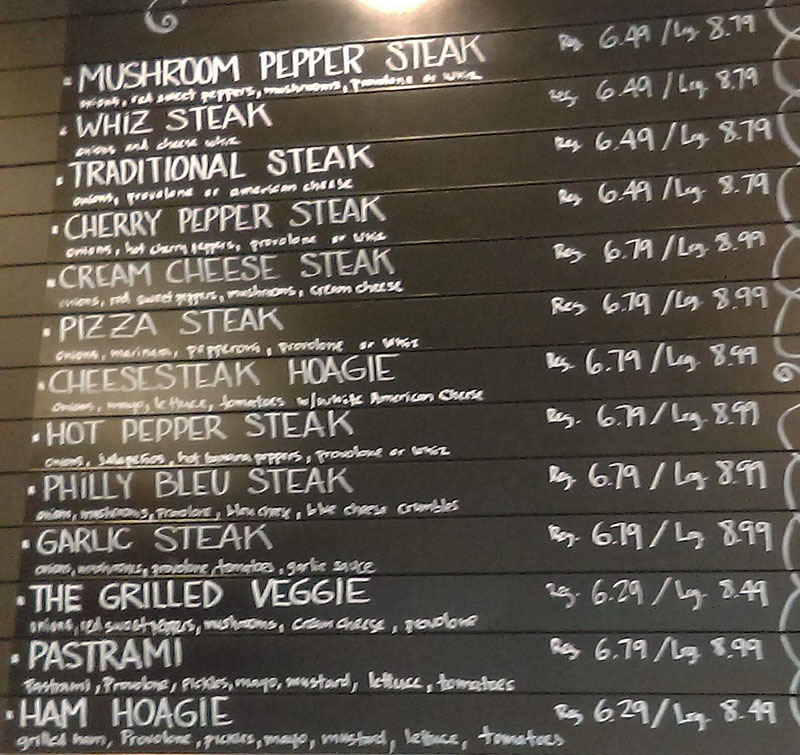 · MUSHROOM PEPPER STEAK Reg 6.49 / Lg. 8.79
onions, red sweet peppers, mushrooms, provolone or whiz
· WHIZ STEAK Reg. 6.49 / Lg. 8.79
onions and cheese whiz
· TRADITIONAL STEAK Reg. 6.49 / Lg. 8.79
onions, provolone or american cheese
· CHERRY PEPPER STEAK Reg. 6.49 / Lrg. 8.79
onions, hot cherry peppers, provolone or whiz
· CREAM CHEESE STEAK Reg. 6.79 / Lrg. 8.99
onions, red sweet peppers, mushrooms, cream cheese
· PIZZA STEAK Reg. 6.79 / Lrg. 8.99
onions, marinara, pepperoni, provolone or whiz
· CHEESESTEAK HOAGIE Reg. 6.79 / Lrg. 8.99
onions, mayo, lettuce, tomatoes w/white American Cheese
· HOT PEPPER STEAK Reg. 6.79 / Lrg. 8.99
onions, jalapeños, hot banana peppers, provolone or whiz
· PHILLY BLEU STEAK Reg. 6.79 / Lrg. 8.99
onions, mushrooms, provolone, bleu cheese crumbles
· GARLIC STEAK Reg. 6.79 / Lrg. 8.99
onions, mushrooms, provolone, tomatoes, garlic sauce
· THE GRILLED VEGGIE Reg. 6.29 / Lg. 8.49
onions, red sweet peppers, mushrooms, cream cheese, provolone
· PASTRAMI Reg 6.79 / Lrg 8.99
Pastrami, Provolone, pickles, mayo, mustard, lettuce, tomatoes
· HAM HOAGIE Reg 6.29 / Lrg. 8.49
grilled ham, Provolone, pickles, mayo, mustard, lettuce, tomatoes